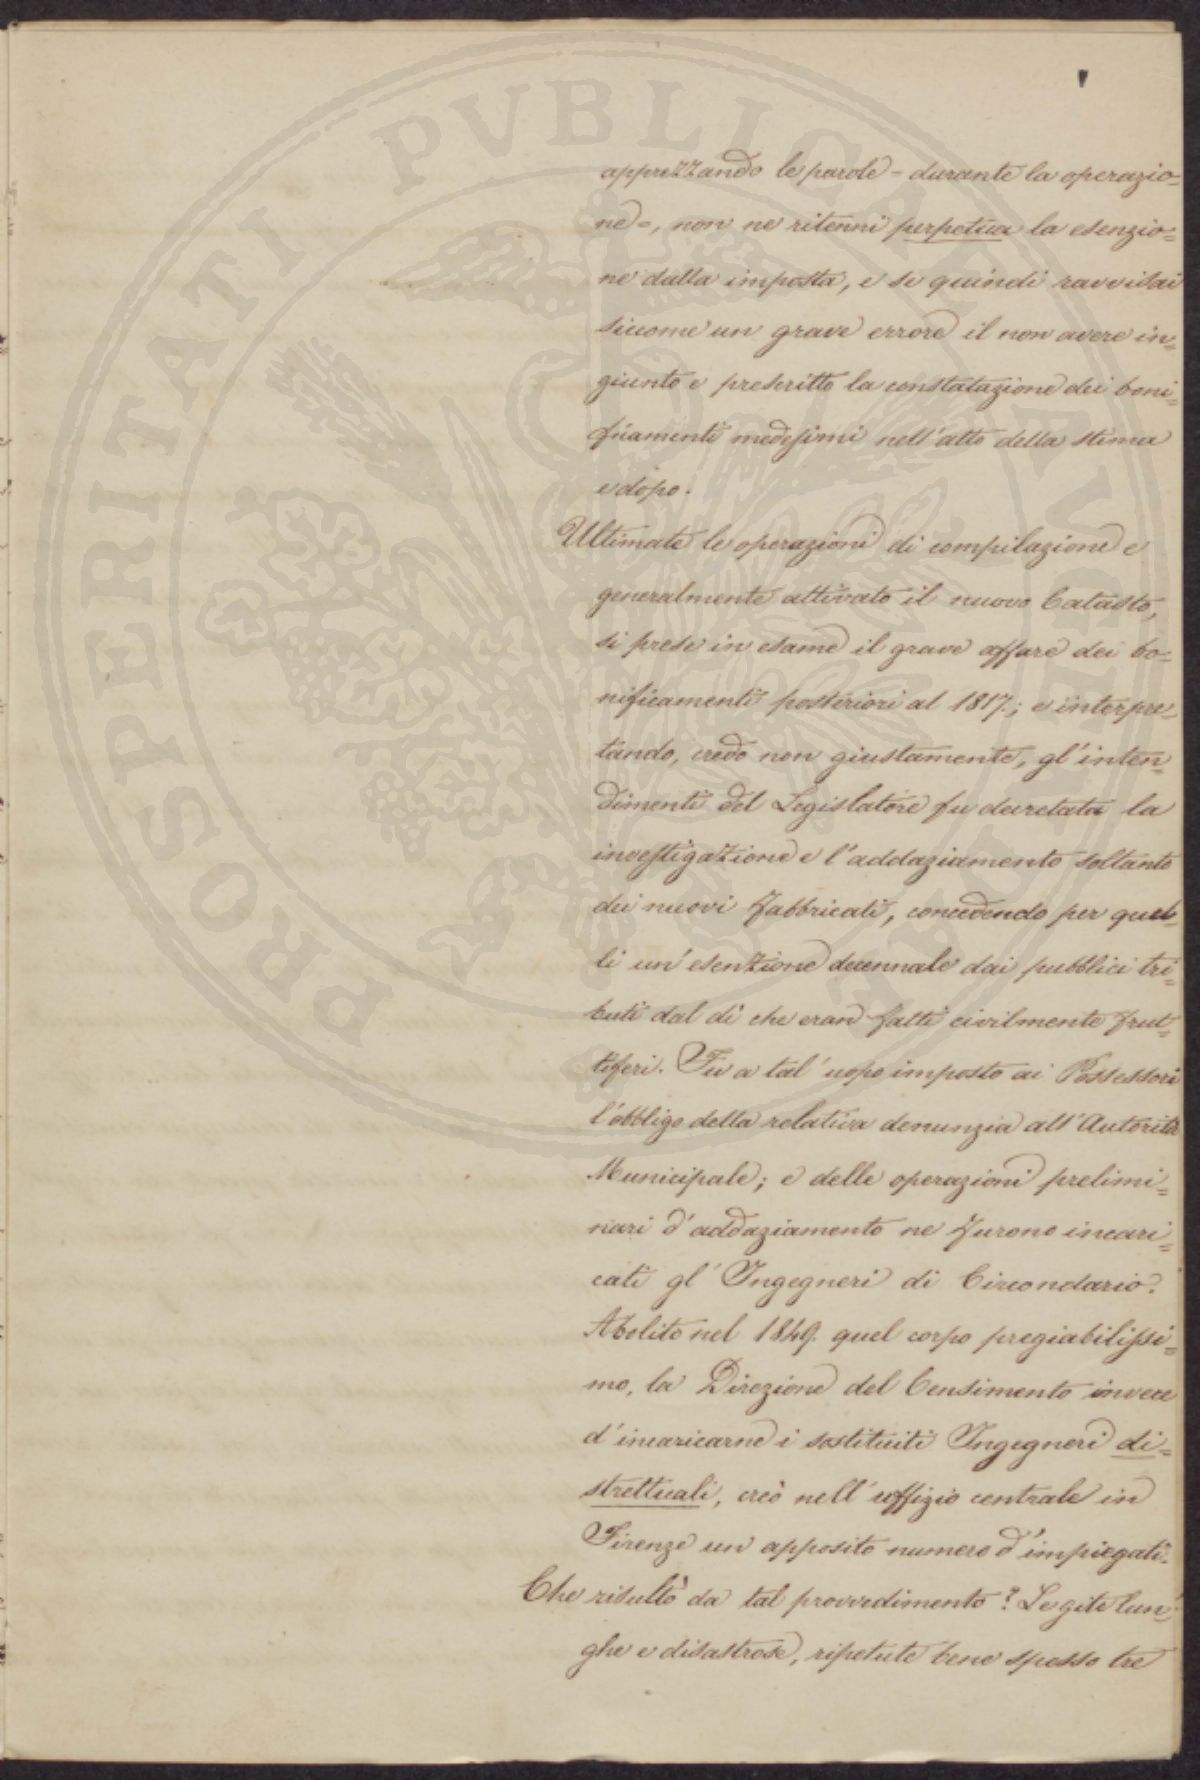 PROSPERITATI PVBLICAE AVGENDAE
apprezzando le parole = durante la operazio=
ne =, non ne ritenni perpetua la esenzio=
ne dalla imposta, e se quindi ravvisai
siccome un grave errore il non avere in=
giunto e prescritto la constatazione dei boni=
ficamenti medesimi nell'atto della stima
e dopo.
Ultimate le operazioni di compilazione e
generalmente attivato il nuovo Catasto,
si prese in esame il grave affare dei bo=
nificamenti posteriori al 1817.; e interpre=
tando, credo non giustamente, gl'inten=
dimenti del Legislatore fu decretata la
investigazione e l'addaziamento soltanto
dei nuovi Fabbricati, concedendo per quel=
li un'esenzione decennale dai pubblici tri=
buti dal dì che eran fatti civilmente frut=
tiferi. Fu a tal'uopo imposto ai Possessori
l'obbligo della relativa denunzia all'Autorità
Municipale; e delle operazioni prelimi=
nari d'addaziamento ne furono incari=
cati gl'Ingegneri di Circondario.
Abolito nel 1849. quel corpo pregiabilissi=
mo, la Direzione del Censimento invece
d'incaricarne i sostituiti Ingegneri di=
strettuali, creò nell'uffizio centrale in
Firenze un apposito numero d'impiegati.
Che risultò da tal provvedimento? Le gite lun=
ghe e disastrose, ripetute bene spesso tre